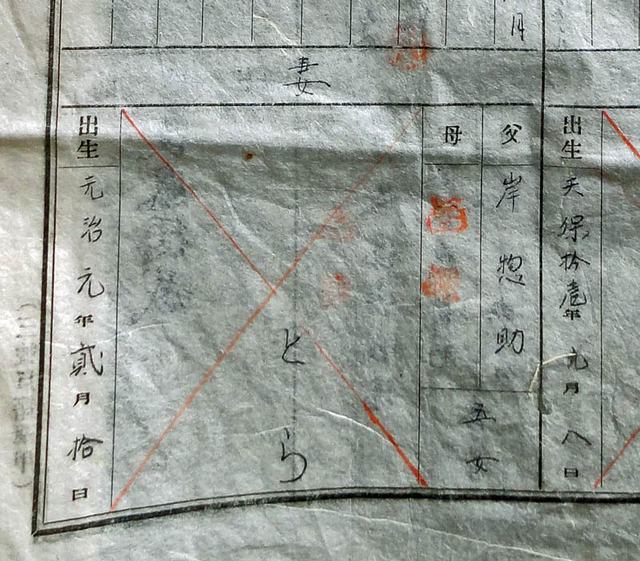 月
出生 天保拾壱年九月八日
父 岸惣助
母
五女
妻
とら
出生 元治元年貳月拾日